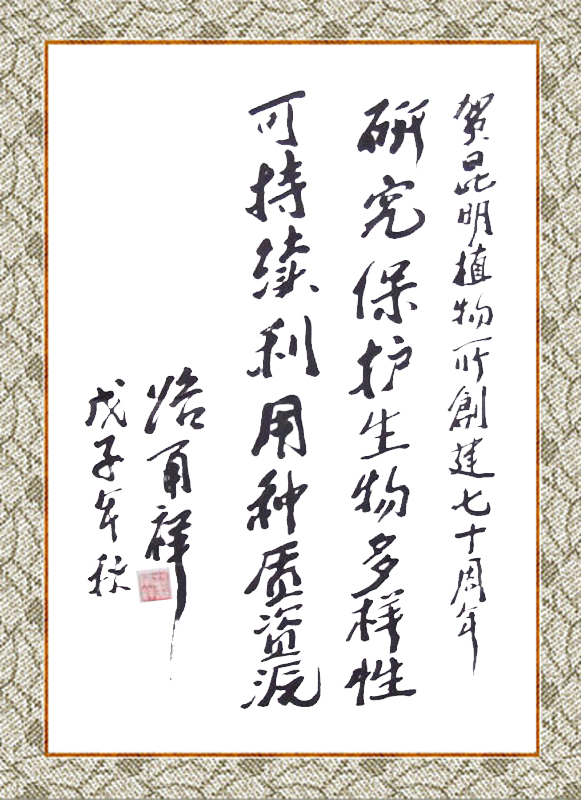 贺昆明植物所創建七十周年
研究保护生物多样性
可持续利用种质资源
路甬祥
戊子年秋